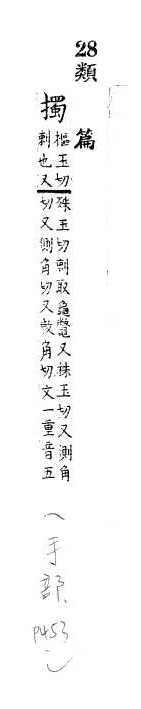 28
類篇
擉
樞玉切
刺也又
殊玉切刺取龜鼈又株玉切又測角
切又測角切又敕角切文一重音五
(手部、P453)